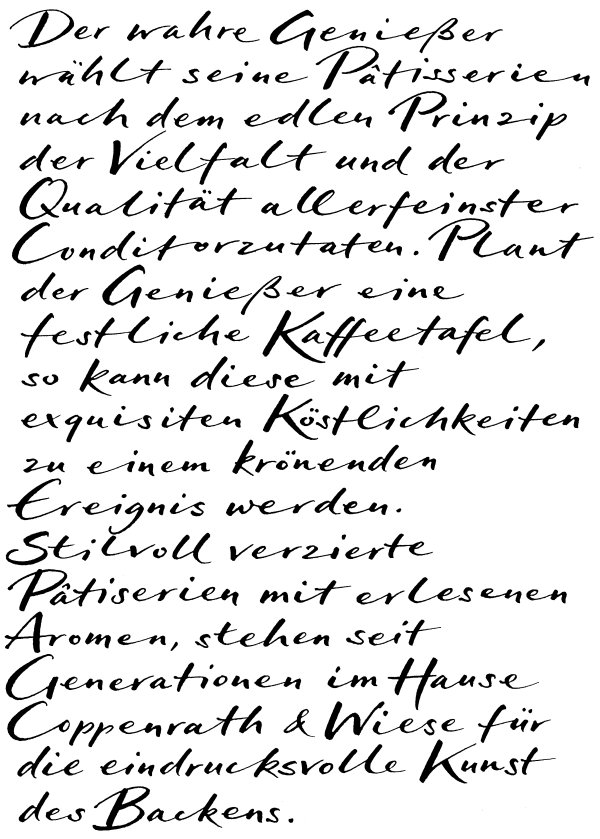 Der wahre Genießer
wählt seine Pâtisserien
nach dem edlen Prinzip
der Vielfalt und der
Qualität allerfeinster
Conditorzutaten. Plant
der Genießer eine
festliche Kaffeetafel,
so kann diese mit
exquisiten Köstlichkeiten
zu einem krönenden
Ereignis werden.
Stilvoll verzierte
Pâtiserien mit erlesenen
Aromen, stehen seit
Generationen im Hause
Coppenrath & Wiese für
die eindrucksvolle Kunst
des Backens.